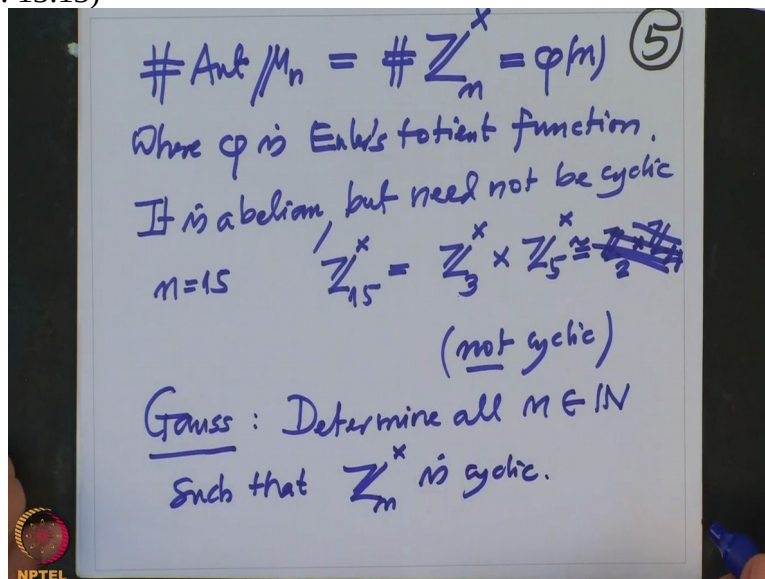 # Aut μ_n = # ℤ_n^× = φ(n) ⑤
Where φ is Euler's totient function.
It is abelian, but need not be cyclic
n=15 ℤ_15^× = ℤ_3^× × ℤ_5^× ≅
(not cyclic)
Gauss : Determine all n ∈ ℕ
Such that ℤ_n^× is cyclic.
NPTEL